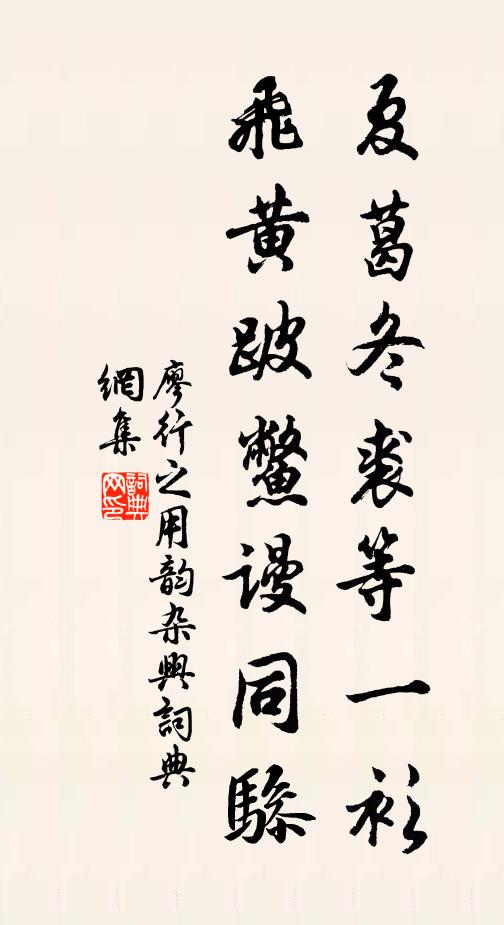 夏葛冬裘等一衫
飛黃跛鱉謾同驂
廖行之用韵杂興詞典
網集
詞典
网印